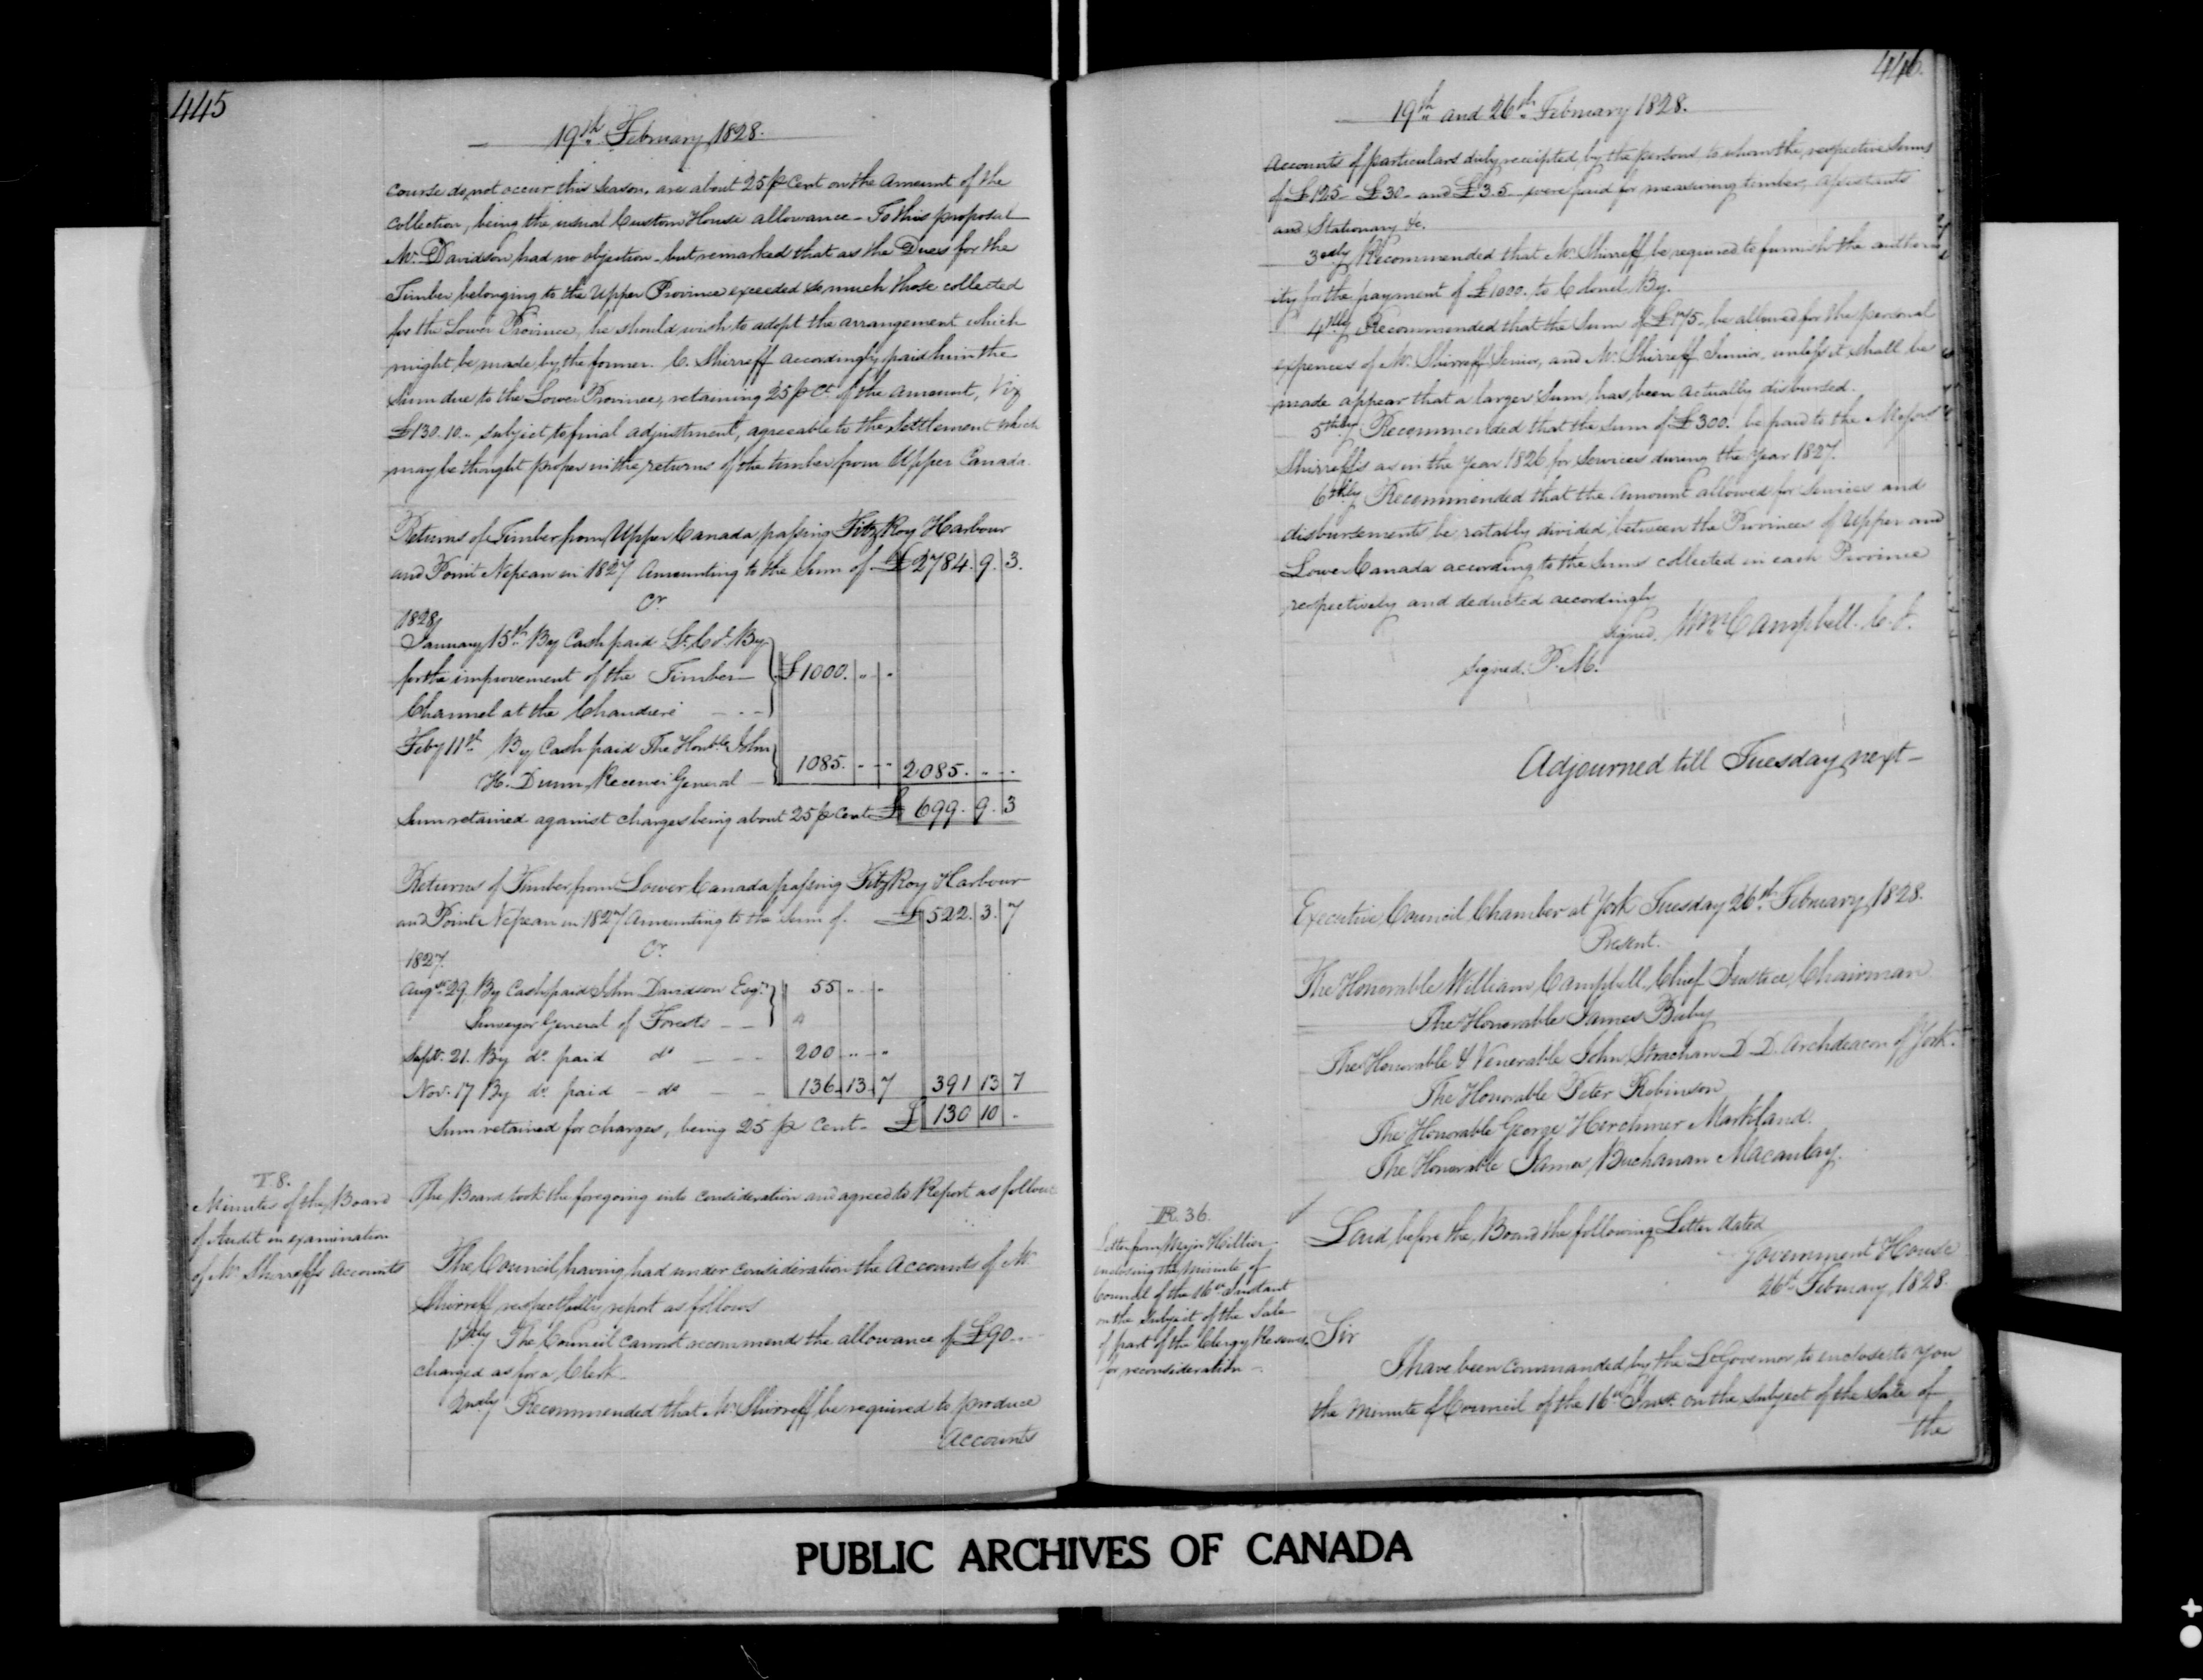 445
19th February 1828.
course do not occur this season, are about 25 p Cent on the Amount of the
Collection, being the usual Custom House allowance – To this proposal
Mr. Davidson had no objection – but remarked that as the Dues for the
Timber belonging to the Upper Province exceeded so much those collected
for the Lower Province, he should wish to adopt the arrangement which
might be made by the former. C. Shirreff accordingly paid him the
Sum due to the Lower Province, retaining 25 p Ct. of the Amount, Viz
£130.10.. subject to final adjustment, agreeable to the Settlement which
may be thought proper in the returns of the timber from Upper Canada.
Returns of Timber from Upper Canada passing Fitz Roy Harbour
and Point Nepean in 1827 Amounting to the Sum of £2784. 9. 3.
Cr.
1828
January 15th By Cash paid Lt. Col. By
for the improvement of the Timber £1000. „ „
Channel at the Chaudiere
Feby 11th By Cash paid The Honble John
H. Dunn Receiver General – 1085. - - 2085. - -
Sum retained against charges being about 25 p Cent £ 699. 9. 3
Returns of Timber from Lower Canada passing Fitz Roy Harbour
and Point Nepean in 1827 Amounting to the Sum of. £ 522. 3. 7
Cr.
1827.
Augst. 29. By Cash paid John Davidson Esqr. 55 „ „
Surveyor General of Forests – –
Sept. 21. By do. paid do – – – 200 „ „
Nov. 17 By do. paid – do – – 136. 13. 7 391 13 7
Sum retained for charges, being 25 p Cent – £ 130 10 -
T. 8.
Minutes of the Board
of Audit in examination
of Mr. Shirreffs Accounts
The Board took the foregoing into consideration and agreed to Report as follows
The Council having had under consideration the Accounts of Mr
Shirreff respectfully report as follows
1stly The Council cannot recommend the allowance of £90 - -
charged as for a Clerk.
2ndly Recommended that Mr Shirreff be required to produce
Accounts
446.
19th and 26th February 1828.
Accounts of particulars duly receipted by the persons to whom the respective Sums
of £125 – £30 – and £3.5 – were paid for measuring timber, Assistants
and Stationary &c.
3rdly Recommended that Mr. Shirreff be required to furnish the author-
ity for the payment of £1000. to Colonel By.
4thly Recommended that the Sum of £175 – be allowed for the personal
expences of Mr. Shirreff Senior, and Mr. Shirreff Junior, unless it shall be
made appear that a larger Sum, has been actually disbursed.
5thly Recommended that the Sum of £300. be paid to the Messrs
Shirreffs as in the year 1826 for Services during the year 1827.
6thly Recommended that the Amount allowed for Services and
disbursements be ratably divided between the Provinces of Upper and
Lower Canada according to the Sums collected in each Province
respectively and deducted accordingly
signed. Wm. Campbell. C. J.
signed. P. M.
Adjourned till Tuesday next –
Executive Council Chamber at York Tuesday 26th February 1828.
Present.
The Honorable William Campbell, Chief Justice, Chairman
The Honorable James Baby
The Honorable & Venerable John Strachan D. D. Archdeacon of York.
The Honorable Peter Robinson
The Honorable George Herchmer Markland.
The Honorable James Buchanan Macaulay.
R. 36.
Letter from Major Hillier
enclosing the Minute of
Council of the 16th Instant
on the Subject of the Sale
of part of the Clergy Reserves
for reconsideration –
Laid before the Board the following Letter dated
Government House
26th February 1828.
Sir
I have been commanded by the Lt Governor to enclose to you
the Minute of Council of the 16th Inst. on the subject of the Sale of
the
PUBLIC ARCHIVES OF CANADA